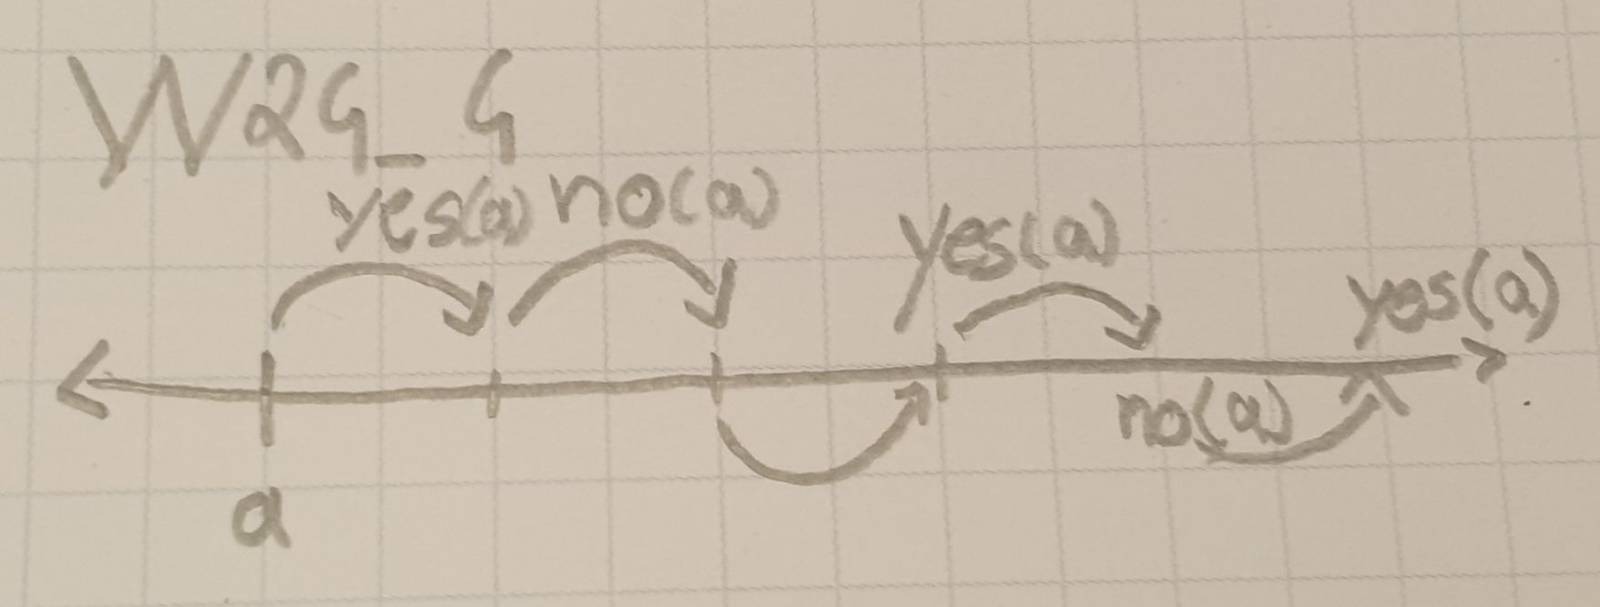 W24_4
yes(a) no(a) yes(a) yes(a)
no(a)
a